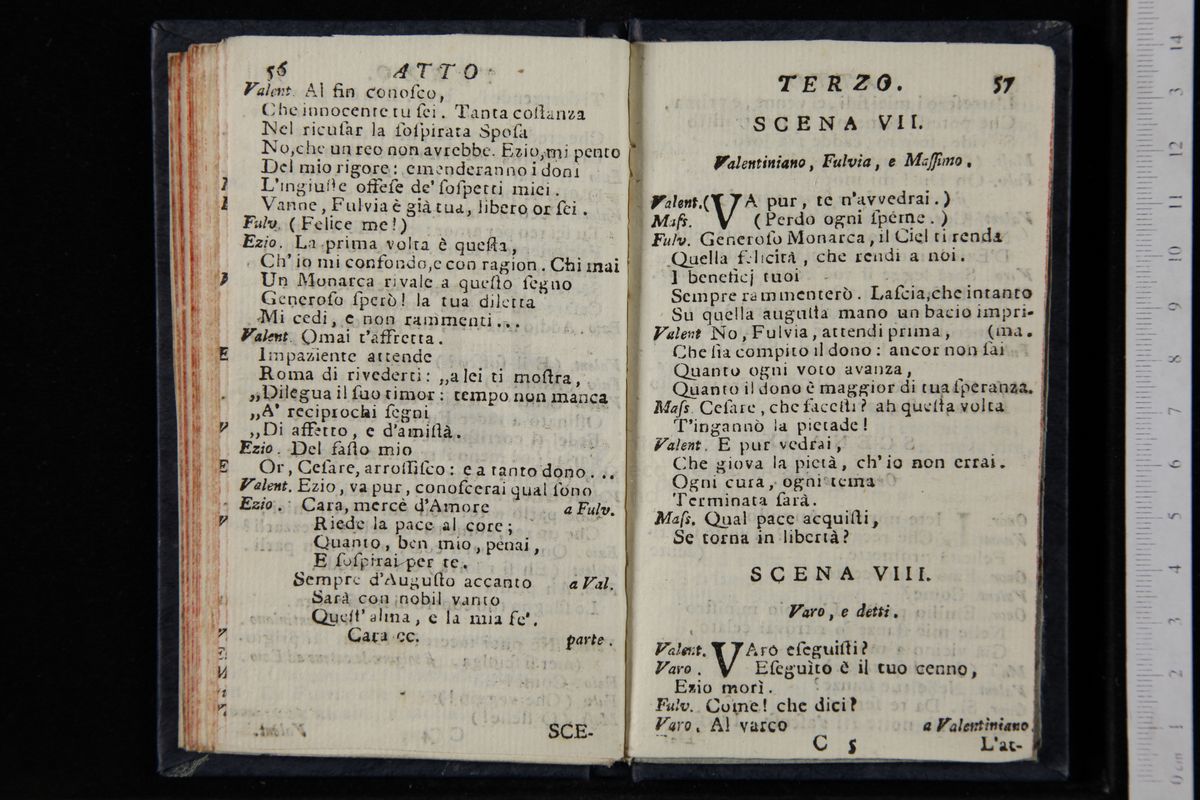 56 ATTO
Valent. Al fin conoſco,
Che innocente tu ſei. Tanta coſtanza
Nel ricuſar la ſoſpirata Spoſa
No, che un reo non avrebbe. Ezio, mi pento
Del mio rigore: emenderanno i doni
L'ingiuſte offeſe de' ſoſpetti miei.
Vanne, Fulvia è già tua, libero or ſei.
Fulv. (Felice me!)
Ezio. La prima volta è queſta,
Ch' io mi confondo, e con ragion. Chi mai
Un Monarca rivale a queſto ſegno
Generoſo ſperò! la tua diletta
Mi cedi, e non rammenti...
Valent. Omai t'affretta.
Impaziente attende
Roma di rivederti: „a lei ti moſtra,
„Dilegua il ſuo timor: tempo non manca
„A' reciprochi ſegni
„Di affetto, e d'amiſtà.
Ezio. Del faſto mio
Or, Ceſare, arroſſiſco: e a tanto dono...
Valent. Ezio, va pur, conoſcerai qual ſono
Ezio. Cara, mercè d'Amore a Fulv.
Riede la pace al core;
Quanto, ben mio, penai,
E ſoſpirai per te.
Sempre d'Auguſto accanto a Val.
Sarà con nobil vanto
Queſt' alma, e la mia fe'.
Cara ec. parte.
SCE-
TERZO. 57
SCENA VII.
Valentiniano, Fulvia, e Maſſimo.
Valent. (VA pur, te n'avvedrai.)
Maſs. (Perdo ogni ſpeme.)
Fulv. Generoſo Monarca, il Ciel ti renda
Quella felicità, che rendi a noi.
I beneficj tuoi
Sempre rammenterò. Laſcia, che intanto
Su quella auguſta mano un bacio impri-
Valent No, Fulvia, attendi prima, (ma.
Che ſia compito il dono: ancor non ſai
Quanto ogni voto avanza,
Quanto il dono è maggior di tua ſperanza.
Maſs Ceſare, che faceſti? ah queſta volta
T'ingannò la pietade!
Valent. E pur vedrai,
Che giova la pietà, ch' io non errai.
Ogni cura, ogni tema
Terminata ſarà.
Maſs. Qual pace acquiſti,
Se torna in libertà?
SCENA VIII.
Varo, e detti.
Valent. VAro eſeguiſti?
Varo. Eſeguìto è il tuo cenno,
Ezio morì.
Fulv. Come! che dici?
Varo. Al varco a Valentiniano
C 5 L'at-